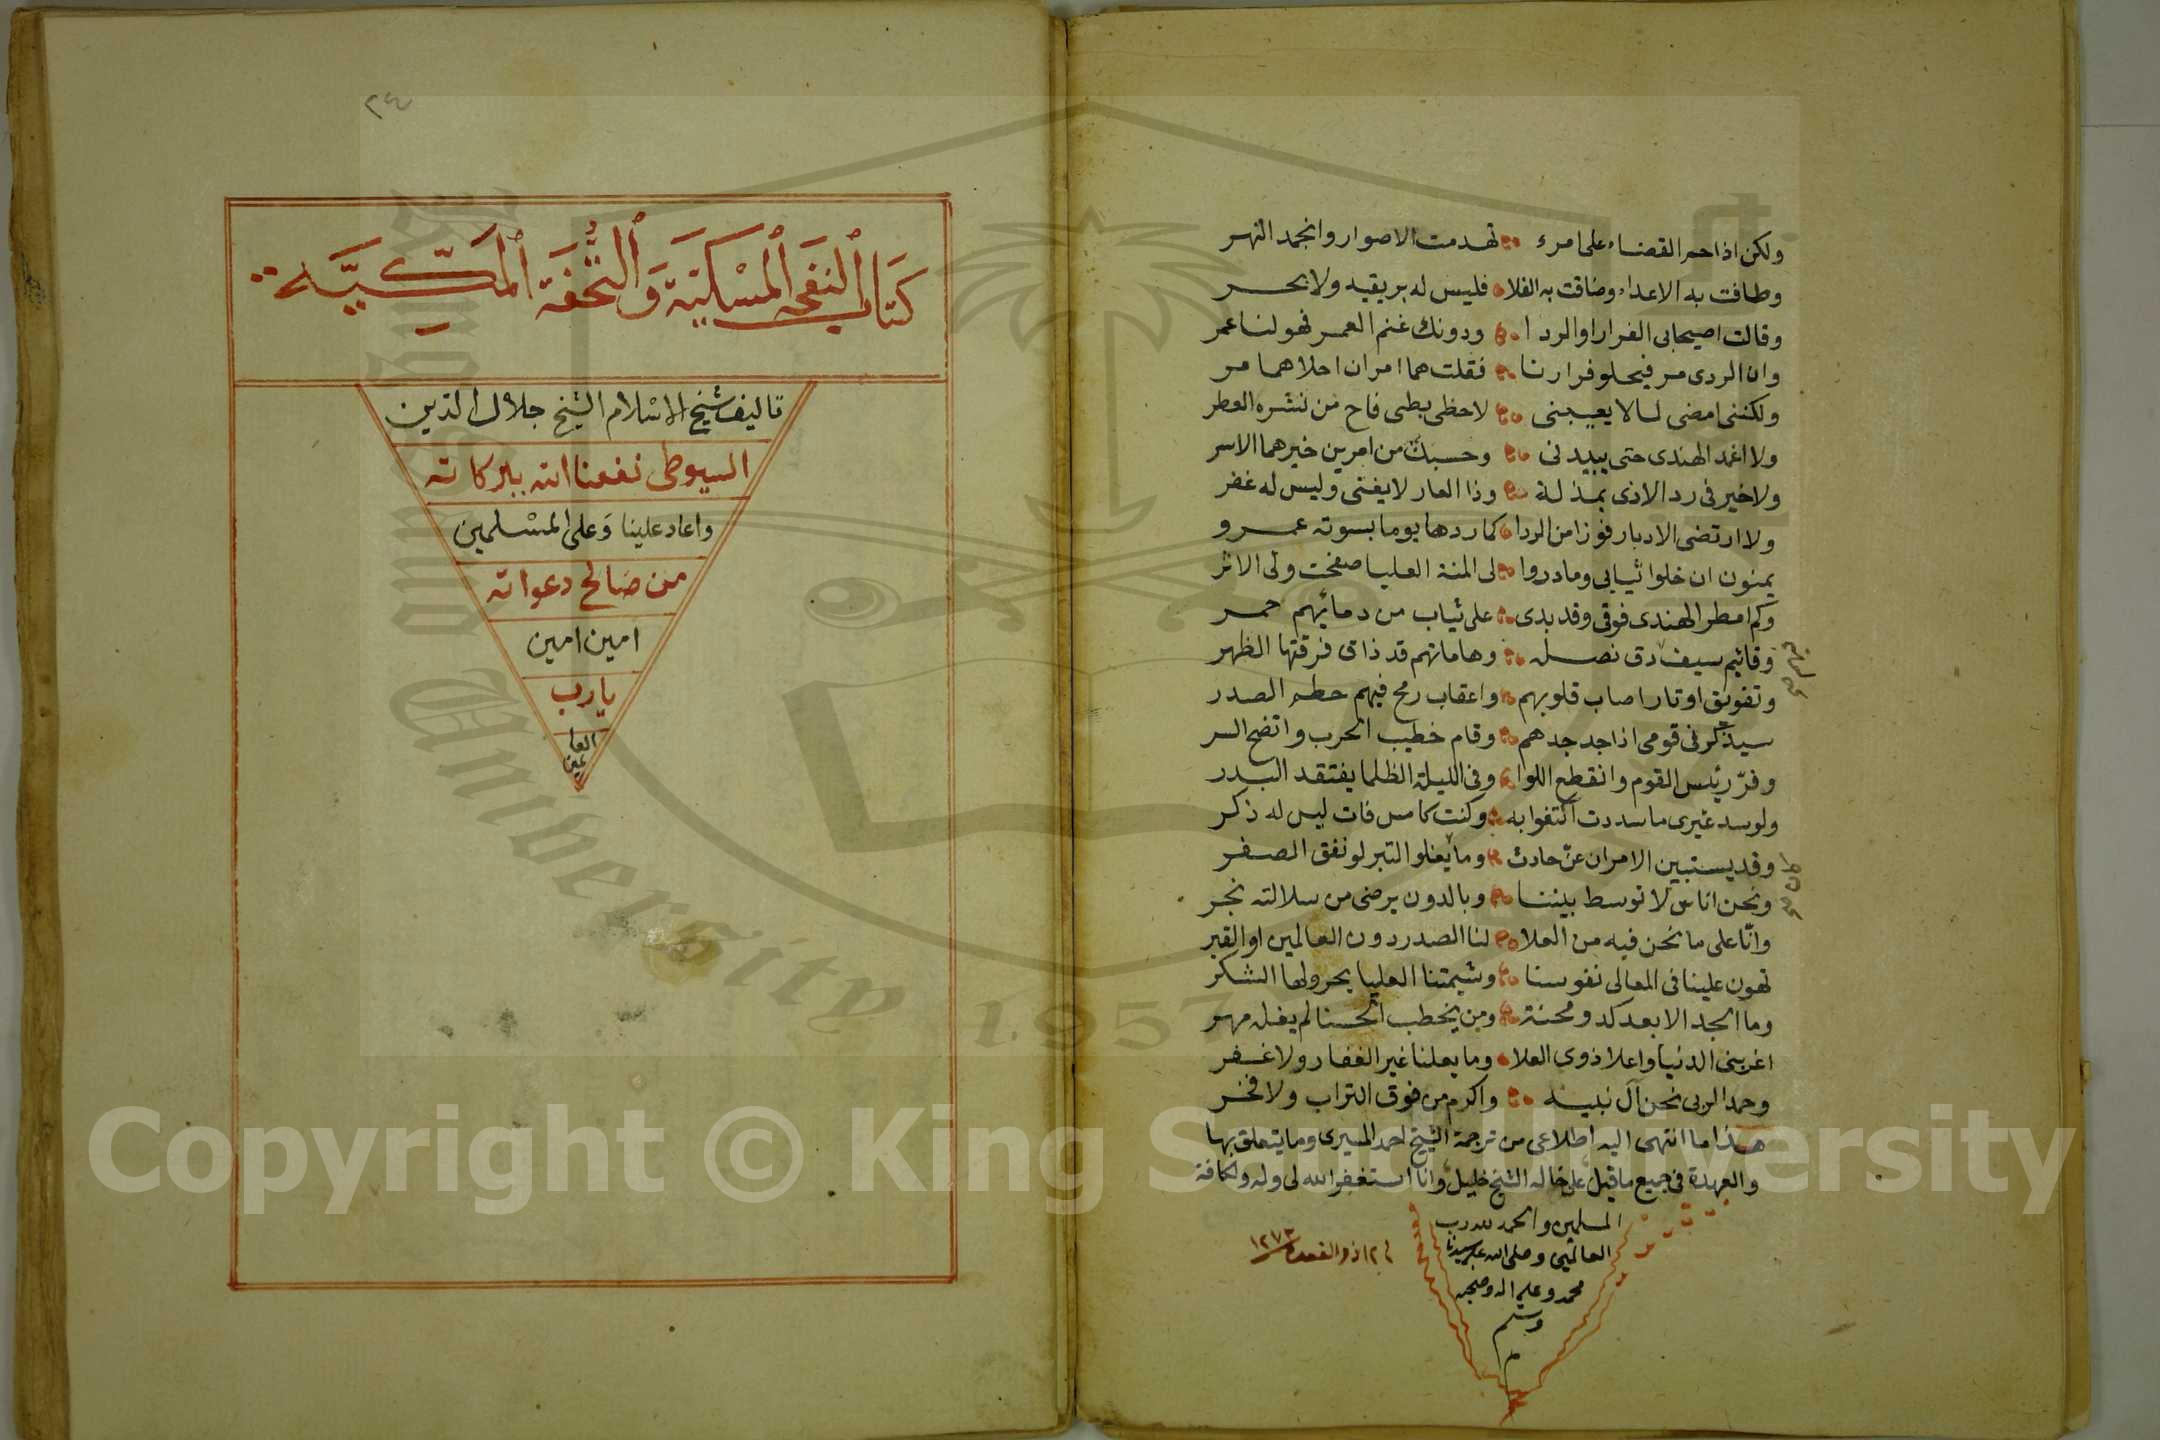 ولكن اذا حم القضاء على امرء تهدمت الاصوار وانجمد النهر
وطافت به الاعداء وضاقت به الفلا فليس له بر يقيه ولا بحر
وقالت اصيحابي الفرار او الردا ودونك غنم العمر فهو لنا عمر
وان الردى مر فيحلو فرارنا فقلت هما امران احلاهما مر
ولكننى امضى لما لا يعيبنى لاحظى بطى فاح من نشره العطر
ولا اغمد الهندى حتى يبيدنى وحسبك من امرين خيرهما الاسر
ولا خير فى رد الاذى بمذلة وذا العار لا يفنى وليس له غفر
ولا ارتضى الادبار فوزا من الردا كما ردها يوما بسوته عمرو
يمنون ان خلوا ثيابى ومادروا لى المنة العليا صفحت ولى الاثر
وكم امطر الهندى فوقى وقد بدى على ثياب من دمائهم حمر
وقائم سيف دق نصله وهاماتهم قد ذاق فرقتها الظهر
وتفويق اوتار اصاب قلوبهم واعقاب رمح فيهم حطم الصدر
سيذكرنى قومى اذا جد جدهم وقام خطيب الحرب واتضح السر
وفر رئيس القوم وانقطع اللوا وفى الليلة الظلما يفتقد البدر
ولو سد غيرى ما سددت اكتفوا به وكنت كامس فات ليس له ذكر
وقد يستبين الامران عن حادث وما يغلو التبر لو نفق الصفر
ونحن اناس لا توسط بيننا وبالدون يرضى من سلالته نجر
وانا على ما نحن فيه من العلا لنا الصدر دون العالمين او القبر
تهون علينا فى المعالى نفوسنا وشيمتنا العليا يحر ولها الشكر
وما المجد الا بعد كد ومحنة ومن يخطب الحسنا لم يغله مهر
اعز بنى الدنيا واعلا ذوى العلا وما يعلنا غير الغفار ولا غفر
وحمدا لربى نحن آل نبيه واكرم من فوق التراب ولا فخر
هذا ما انتهى اليه اطلاعى من ترجمة الشيخ احمد المسيرى وما يتعلق بها
والعهدة فى جميع ما قيل على خاله الشيخ خليل وانا استغفر الله لى وله ولكافة
المسلمين والحمد لله رب
العالمين وصلى الله على سيدنا
محمد وعلى اله وصحبه
وسلم
م
ذو القعدة ١٢٧٣
٢٤
كتاب النفحة المسكية والتحفة المكية
تاليف شيخ الاسلام الشيخ جلال الدين
السيوطى نفعنا الله ببركاته
واعاد علينا وعلى المسلمين
من صالح دعواته
امين امين
يا رب
العا
لمين
Copyright © King Saud University
1957